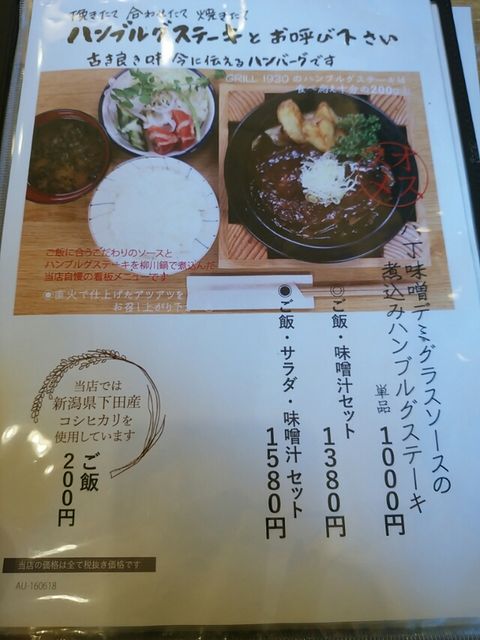 挽きたて 合わせたて 焼きたて
ハンブルグステーキとお呼び下さい
古き良き味 今に伝えるハンバーグです
GRILL 1930 のハンブルグステーキは
食べ応え十分の200g!
オススメ
ご飯に合うこだわりのソースと
ハンブルグステーキを柳川鍋で煮込んだ
当店自慢の看板メニューです
◉直火で仕上げたアツアツを
お召し上がり下
八丁味噌デミグラスソースの
煮込みハンブルグステーキ
単品 1000円
◎ご飯・味噌汁セット 1380円
◉ご飯・サラダ・味噌汁セット 1580円
当店では
新潟県下田産
コシヒカリを
使用しています
ご飯 200円
当店の価格は全て税抜き価格です
AU-160618